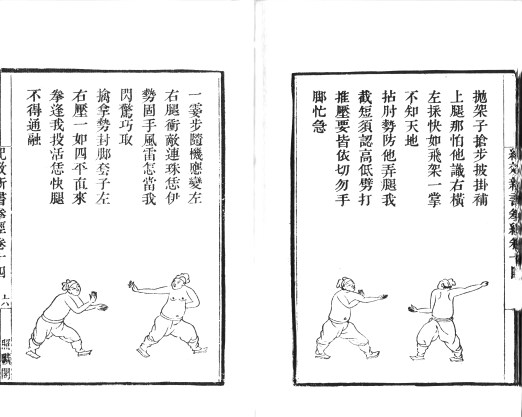 抛架子搶步披掛補
上腿那怕他識右橫
左採快如飛架一掌
不知天地
拈肘勢防他弄腿我
截短須認高低劈打
推壓要皆依切勿手
脚忙急
一霎步隨機應變左
右腿衝敵連珠恁伊
勢固手風雷怎當我
閃驚巧取
擒拿勢封脚套子左
右壓一如四平直來
拳逢我投活恁快腿
不得通融
紀效新書拳經卷十四
六
照曠閣